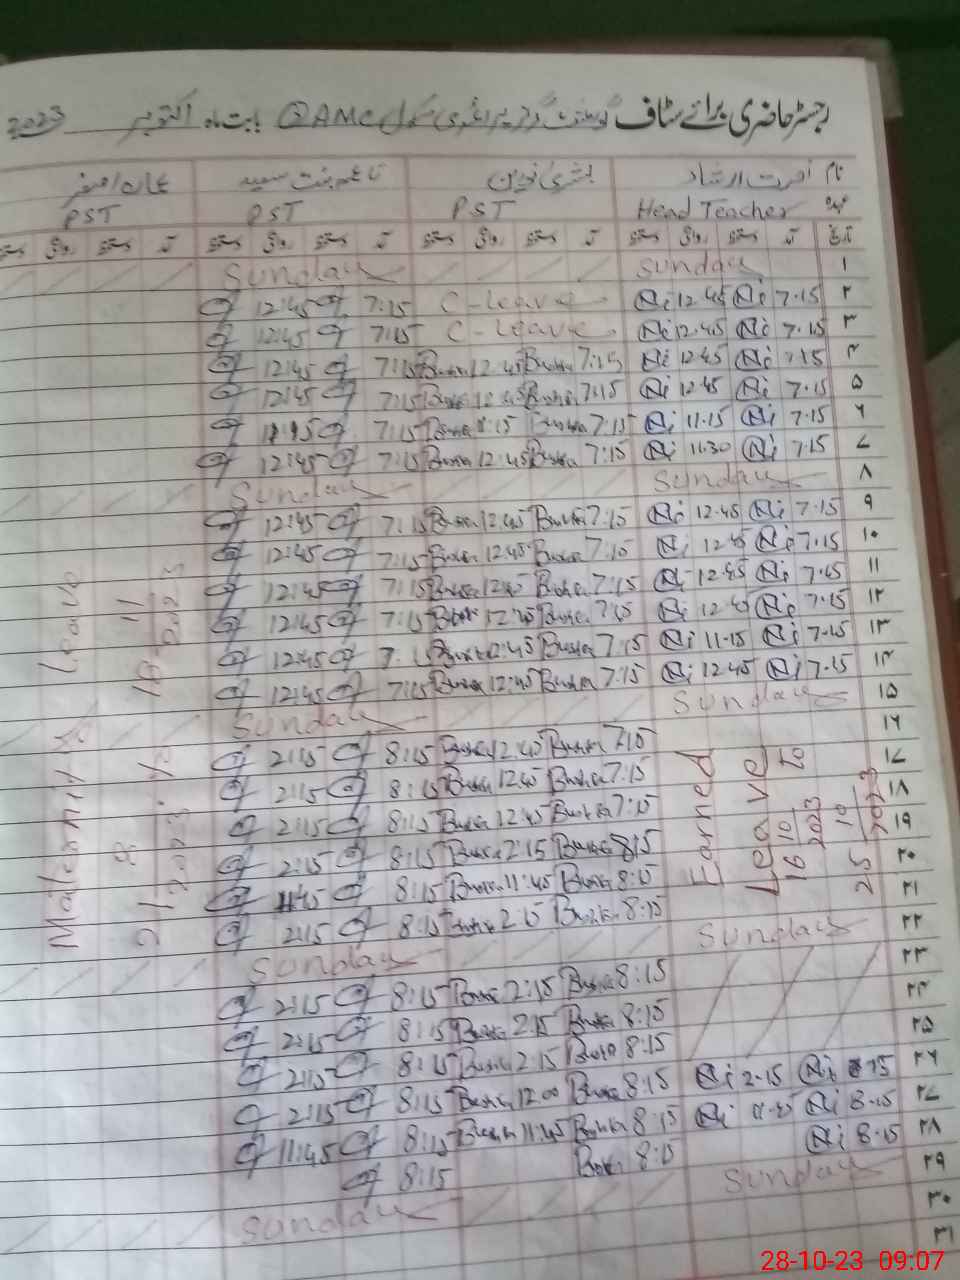 رجسٹر حاضری برائے سٹاف گورنمنٹ گرلز پرائمری سکول 2AMC بابت ماہ اکتوبر 2023
نام نصرت ارشاد بشریٰ نوین
عہدہ Head Teacher PST PST PST
تاریخ آمد دستخط روانگی دستخط آمد دستخط روانگی دستخط آمد دستخط روانگی دستخط آمد دستخط روانگی دستخط
۱ Sunday Sunday
۲ 7.15 12.45 C-Leave 7:15 12:45
۳ 7.15 12.45 C-Leave 7:15 12:45
۴ 7.15 12.45 7:15 Bushra 12:45 Bushra 7:15 12:45
۵ 7.15 12.45 7:15 Bushra 12:45 Bushra 7:15 12:45
۶ 7.15 11.15 7:15 Bushra 11:15 Bushra 7:15
۷ 7.15 11.30 7:15 Bushra 12:45 Bushra 7:15 12:45
۸ Sunday Sunday
۹ 7.15 12.45 7:15 Bushra 12:45 Bushra 7:15 12:45
۱۰ 7.15 12.45 7:15 Bushra 12:45 Bushra 7:15 12:45
۱۱ 7.15 12.45 7:15 Bushra 12:45 Bushra 7:15 12:45
۱۲ 7.15 12.45 7:15 Bushra 12:45 Bushra 7:15 12:45
۱۳ 7.15 11.15 7:15 Bushra 12:45 Bushra 12:45
۱۴ 7.15 12.45 7:15 Bushra 12:45 Bushra 7:15 12:45
۱۵ Sunday Sunday
۱۶ 7:15 Bushra 12:45 Bushra 8:15 2:15
۱۷ 7:15 Bushra 12:45 Bushra 8:15 2:15
۱۸ 7:15 Bushra 12:45 Bushra 8:15 2:15
۱۹ 8:15 Bushra 2:15 Bushra 8:15 2:15
۲۰ 8:15 Bushra 11:45 Bushra 8:15 11:45
۲۱ 8:15 Bushra 2:15 Bushra 8:15 2:15
۲۲ Sunday Sunday
۲۳ 8:15 Bushra 2:15 Bushra 8:15 2:15
۲۴ 8:15 Bushra 2:15 Bushra 8:15 2:15
۲۵ 8:15 Bushra 2:15 Bushra 8:15 2:15
۲۶ 2.15 8:15 Bushra 12:00 Bushra 8:15 2:15
۲۷ 8.15 8:15 Bushra 11:45 Bushra 8:15 11:45
۲۸ 8.15 8:15 Bushra 8:15
۲۹ Sunday Sunday
۳۰
۳۱
Earned
Leave
16 10 2023 to
25 10 2023
Maternity Leave
28-10-23 09:07